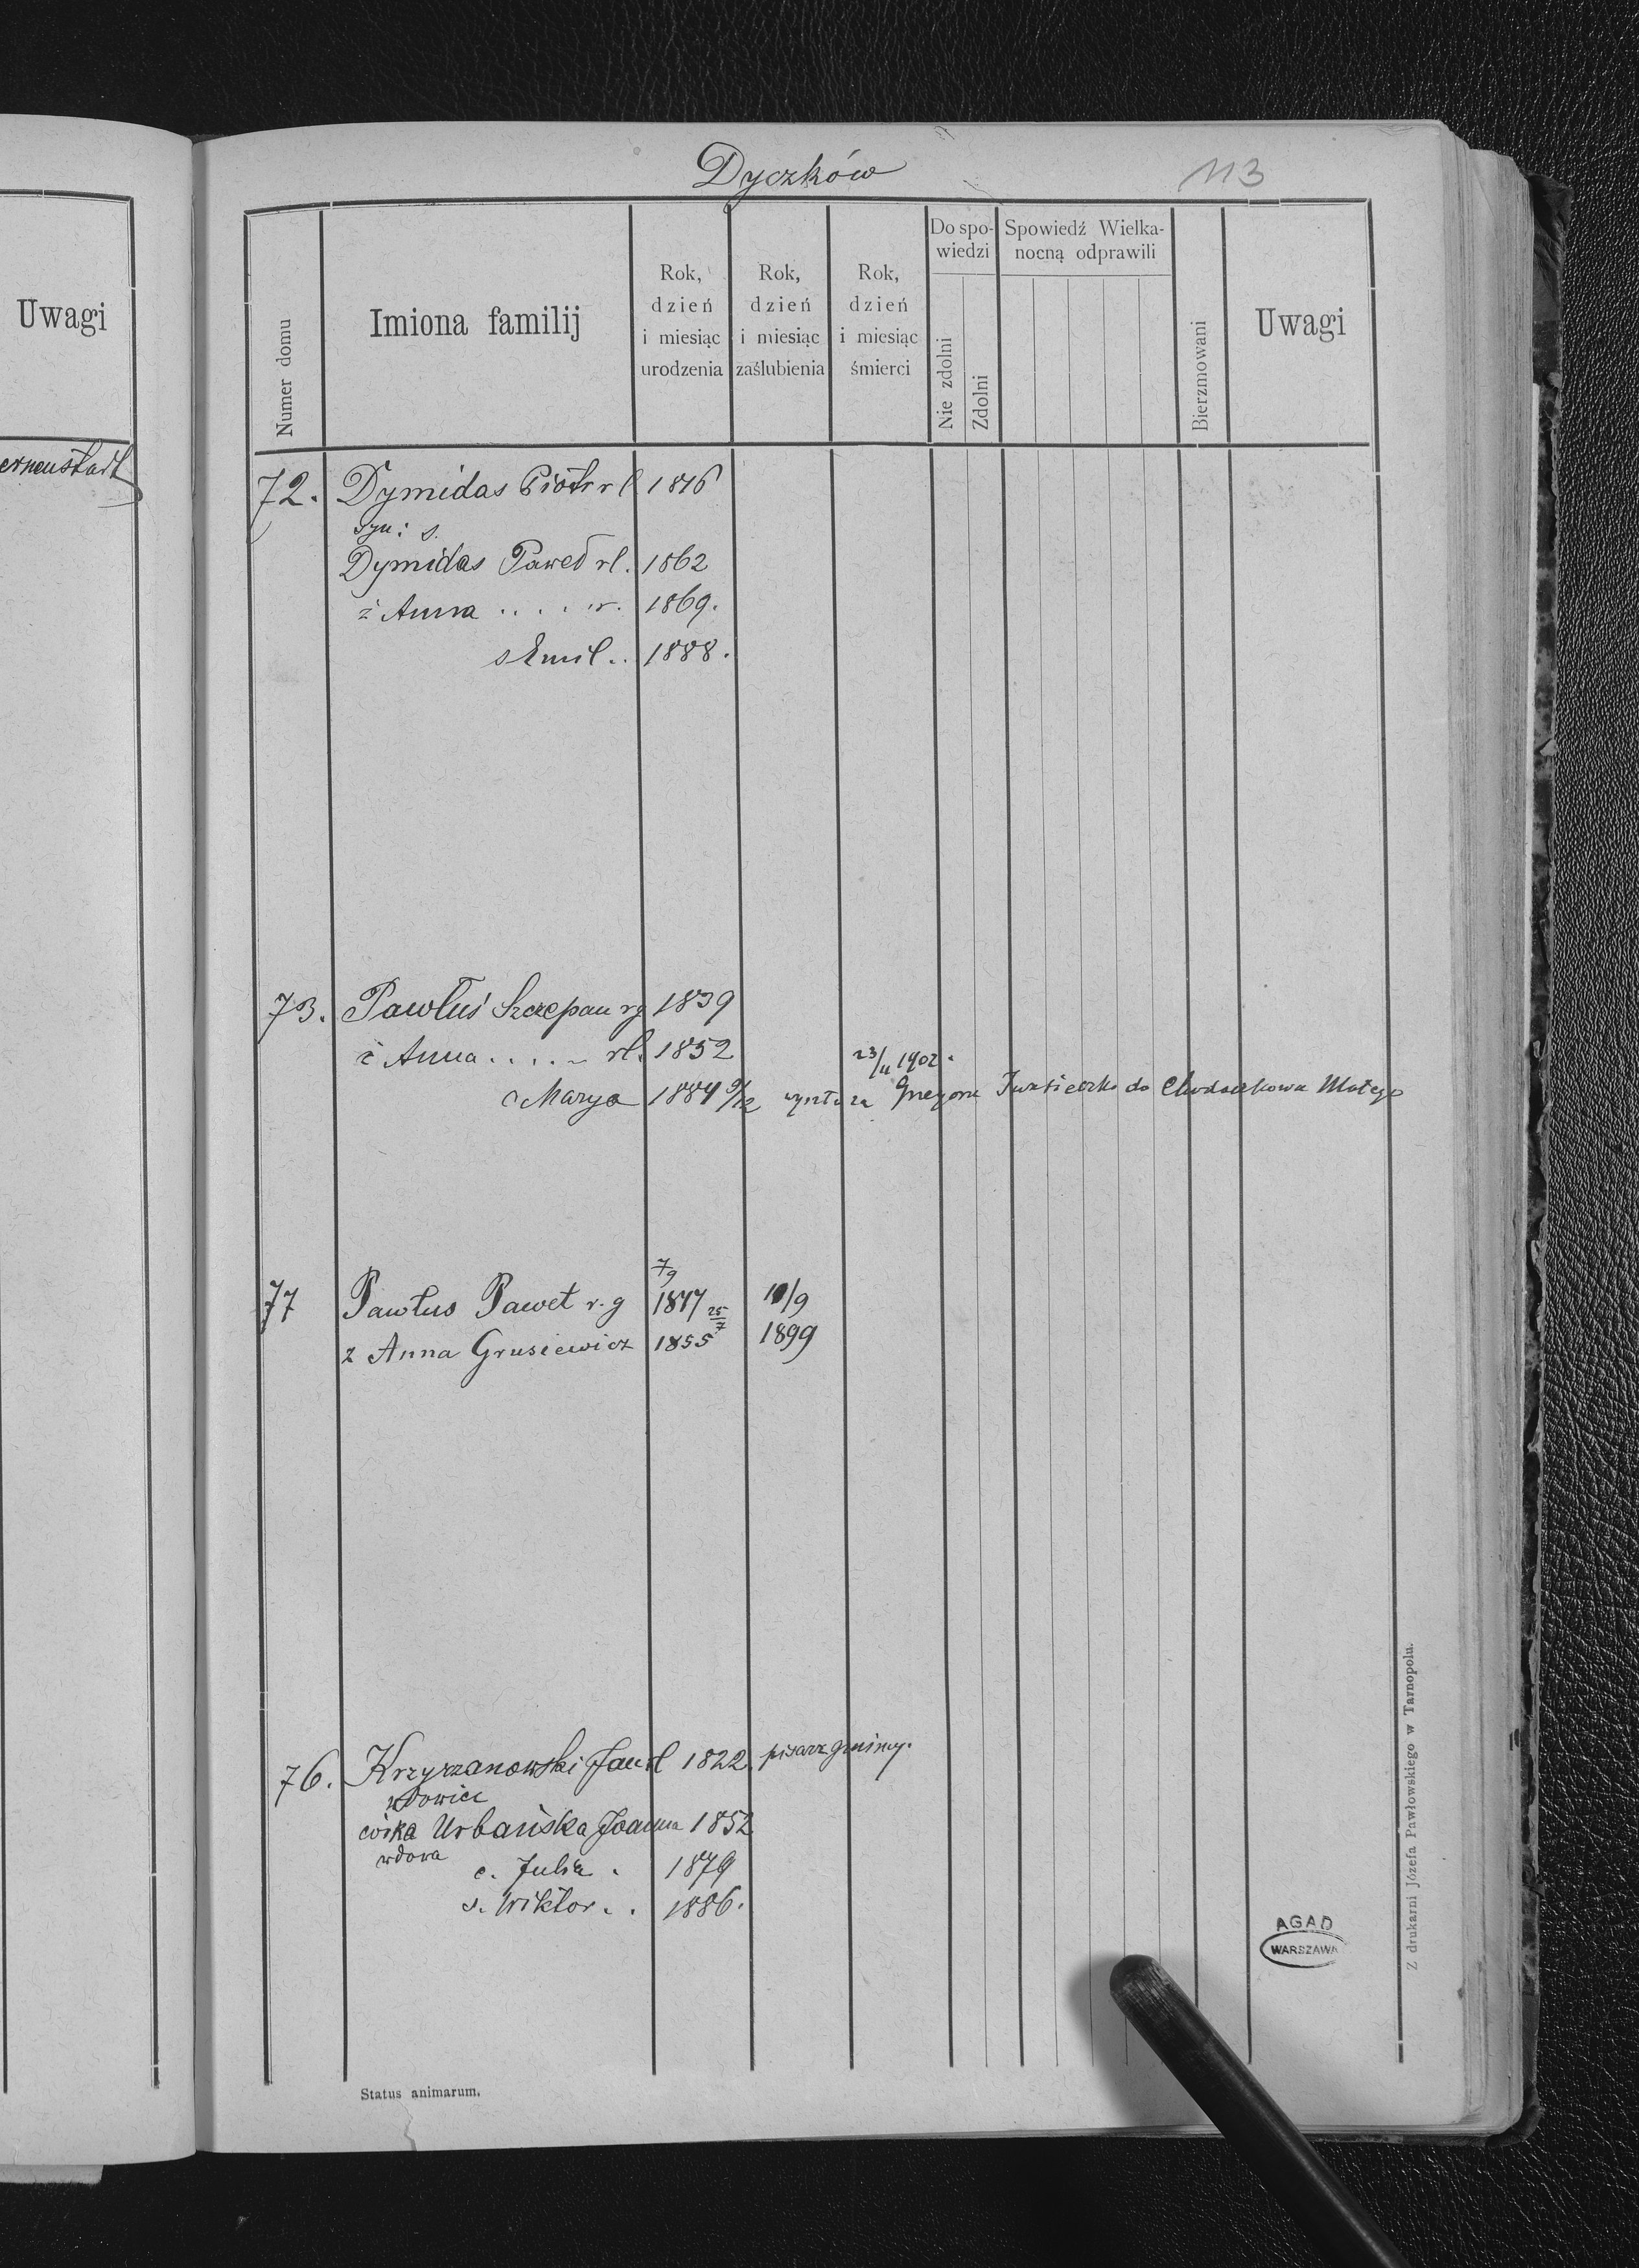 Dyczków
113
Uwagi
Numer domu
Imiona familij
Rok, dzień i miesiąc urodzenia
Rok, dzień i miesiąc zaślubienia
Rok, dzień i miesiąc śmierci
Do spowiedzi
Nie zdolni
Zdolni
Spowiedź Wielkanocną odprawili
Bierzmowani
Uwagi
72. Dymidas Piotr rl 1816
syn: s.
Dymidas Paweł rl. 1862
ż Anna . . . . r. 1869.
s Emil . . 1888.
73. Pawluś Szczepan rg 1839
ż Anna . . . . rl. 1852 23/11 1902.
c Marya 1884 9/12 wyszła za Grzegorza Iwasieczko do Chodaczkowa Małego
7/9
77 Pawlus Paweł r. g 1847 10/9
25/7
z Anna Grusiewicz 1855 1899
76. Krzyżanowski Jan rl 1822 pisarz gminny.
wdowiec
córka Urbańska Joanna 1852
wdowa
c. Julia . 1879
s. Wiktor . . 1886.
AGAD
WARSZAWA
Status animarum.
Z drukarni Józefa Pawłowskiego w Tarnopolu.